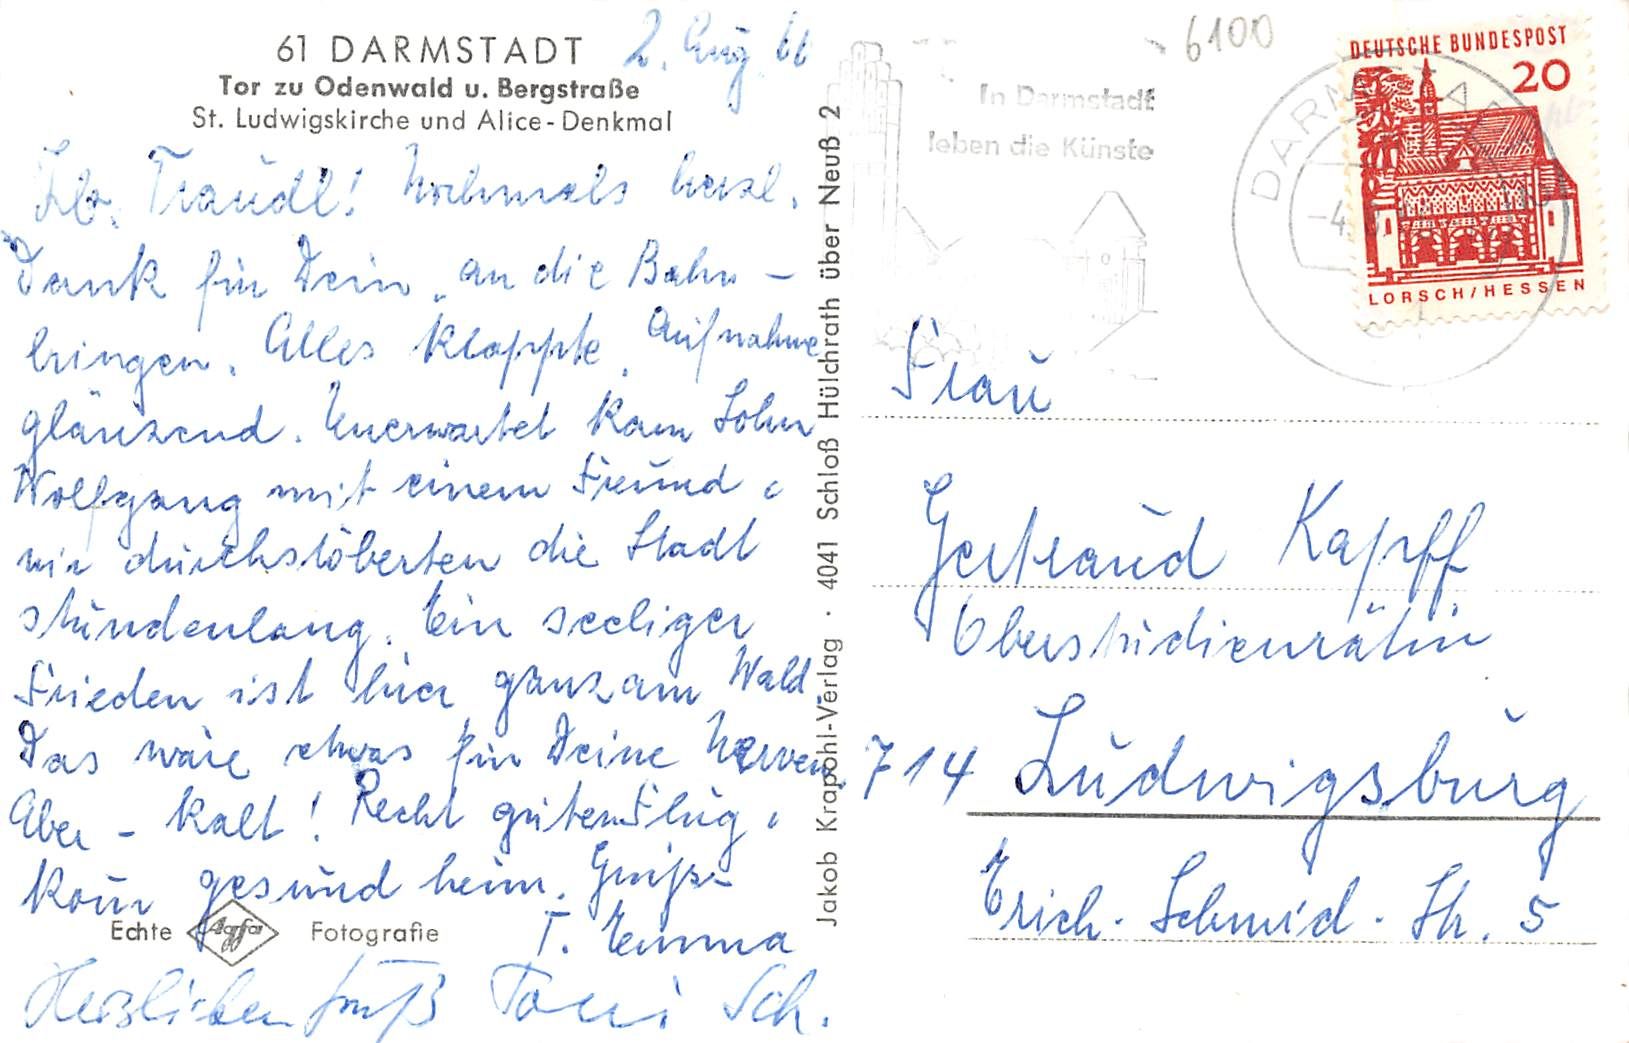 61 DARMSTADT
Tor zu Odenwald u. Bergstraße
St. Ludwigskirche und Alice-Denkmal
2. Aug. 66
Lb. Traudl! Nochmals herzl.
Dank für Dein „an die Bahn -
bringen. Alles klappte, Aufnahme
glänzend. Unerwartet kam Sohn
Wolfgang mit einem Freund,
wir durchstöberten die Stadt
stundenlang. Ein seeliger
Frieden ist hier, ganz am Wald.
Das wäre etwas für Deine Nerven.
Aber - kalt! Recht guten Flug,
komm gesund heim. Gruß
T. Emma
Herzlichen Gruß Toni Sch.
Echte Agfa Fotografie
Jakob Krapohl-Verlag · 4041 Schloß Hülchrath über Neuß 2
In Darmstadt
leben die Künste
6100
DARMSTADT
-4.
DEUTSCHE BUNDESPOST
20
LORSCH/HESSEN
Frau
Gertraud Kapff
Oberstudienrätin
714 Ludwigsburg
Erich-Schmid-Str. 5